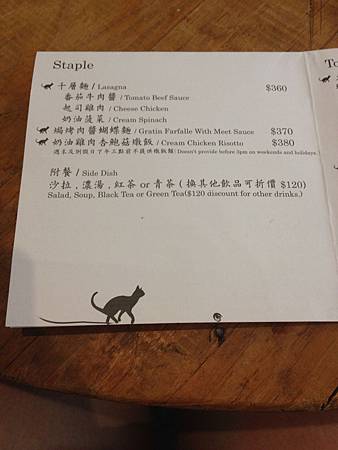 Staple
To
千層麵 / Lasagna $360
番茄牛肉醬 / Tomato Beef Sauce
起司雞肉 / Cheese Chicken
奶油菠菜 / Cream Spinach
焗烤肉醬蝴蝶麵 / Gratin Farfalle With Meet Sauce $370
奶油雞肉杏鮑菇燉飯 / Cream Chicken Risotto $380
週末及例假日下午三點前不提供燉飯類(Doesn't provide before 3pm on weekends and holidays.)
附餐 / Side Dish
沙拉 , 濃湯 , 紅茶 or 青茶 ( 換其他飲品可折價 $120)
Salad, Soup, Black Tea or Green Tea($120 discount for other drinks.)